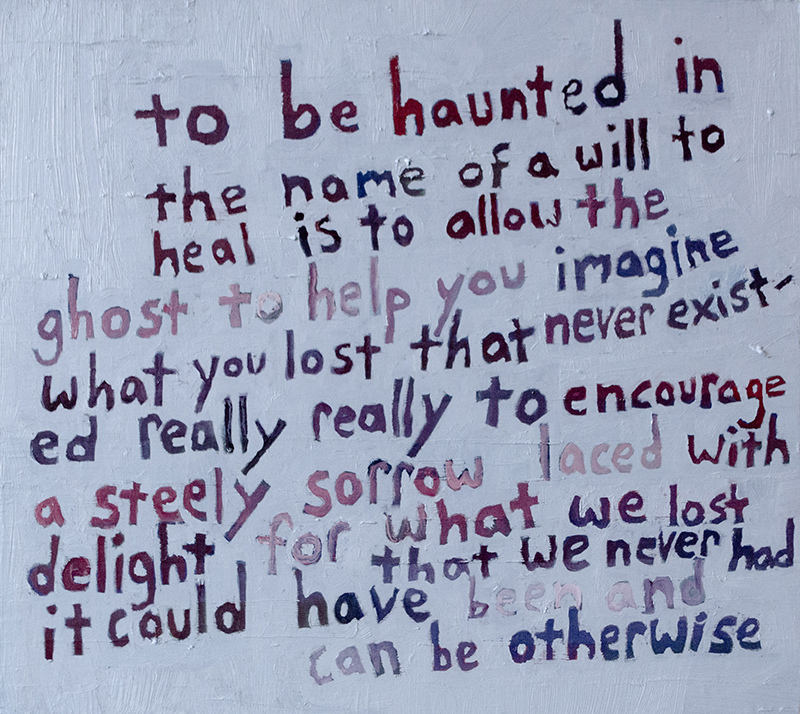 to be haunted in
the name of a will to
heal is to allow the
ghost to help you imagine
what you lost that never exist-
ed really really to encourage
a steely sorrow laced with
delight for what we lost
that we never had
it could have been and
can be otherwise